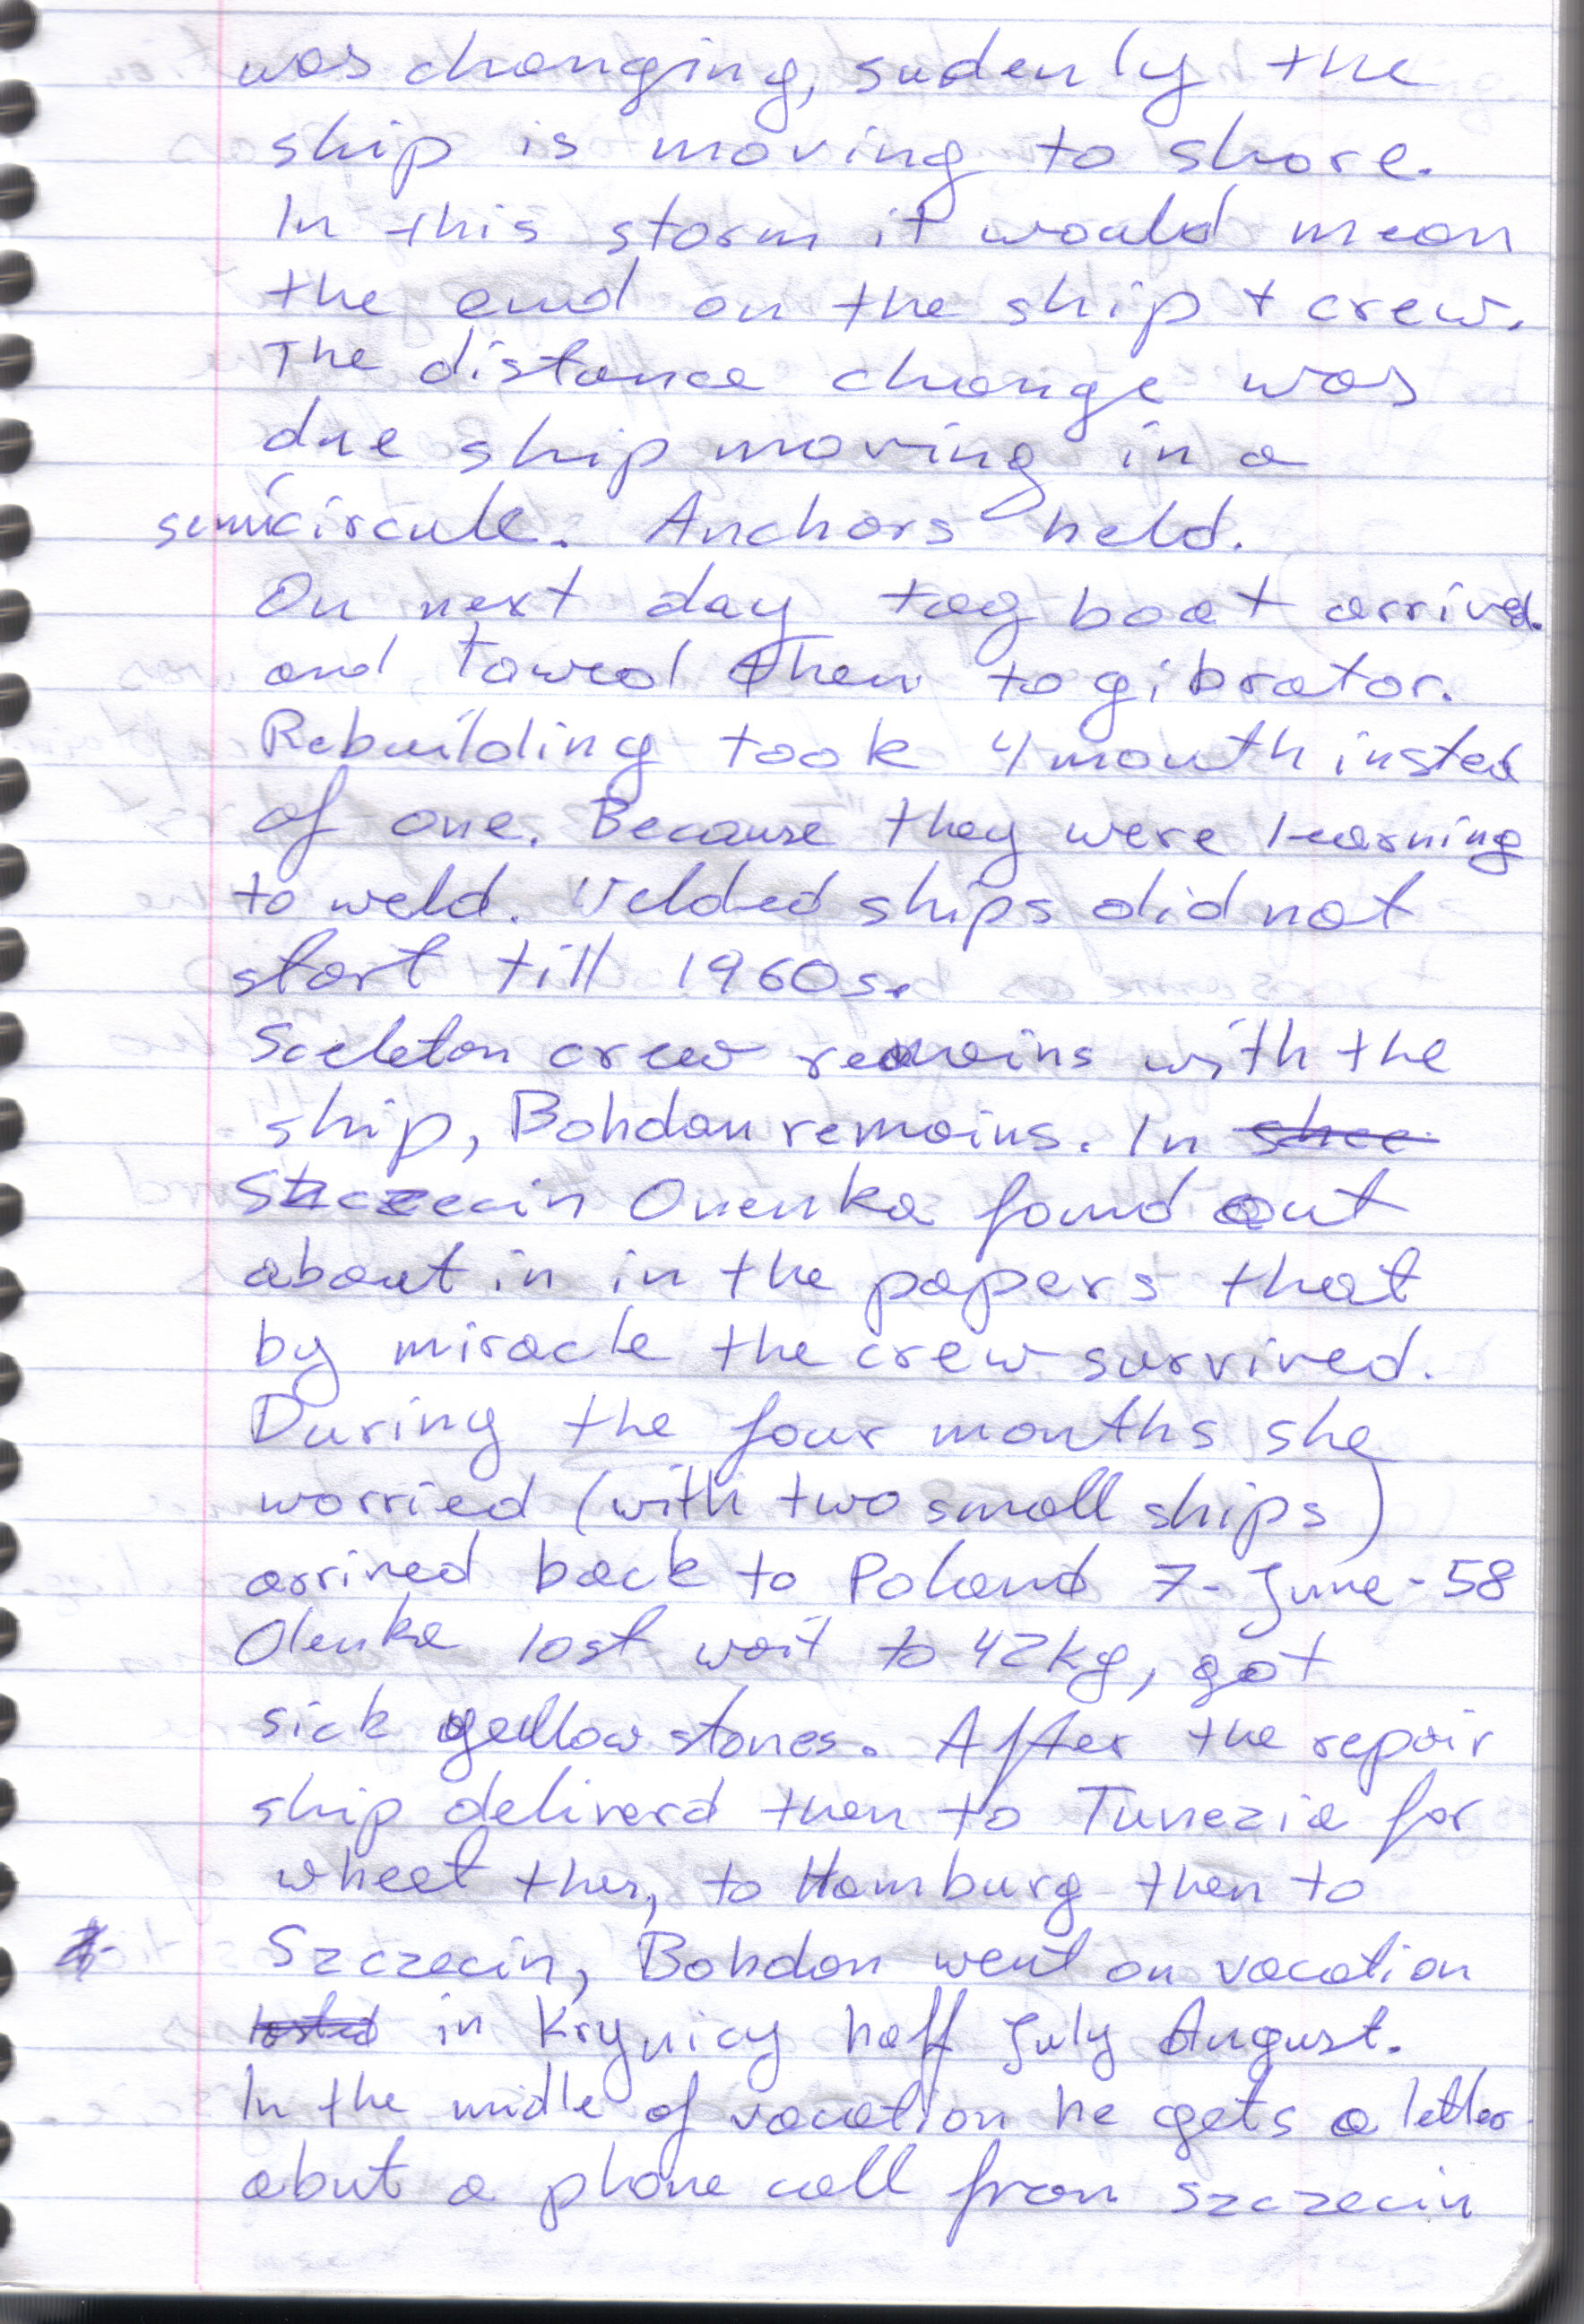 was changing, sudenly the
ship is moving to shore.
In this storm it would mean
the end on the ship + crew.
The distance change was
due ship moving in a
semicircule. Anchors held.
On next day tog boat arrived.
and towed them to gibrator.
Rebuilding took 4 mounth insted
of one. Because they were learning
to weld. Welded ships did not
start till 1960s.
Sceleton crew remains with the
ship, Bohdan remains. In shce
Szczecin Olenka found out
about in in the papers that
by miracle the crew survived.
During the four months she
worried (with two small ships)
arrived back to Poland 7-June-58
Olenka lost wait to 42kg, got
sick yellow stones. After the repair
ship deliverd then to Tunezia for
wheet then, to Hamburg then to
Szczecin, Bohdan went on vacation
in Krynicy half July August.
In the midle of vacation he gets a letter
abut a phone call from Szczecin